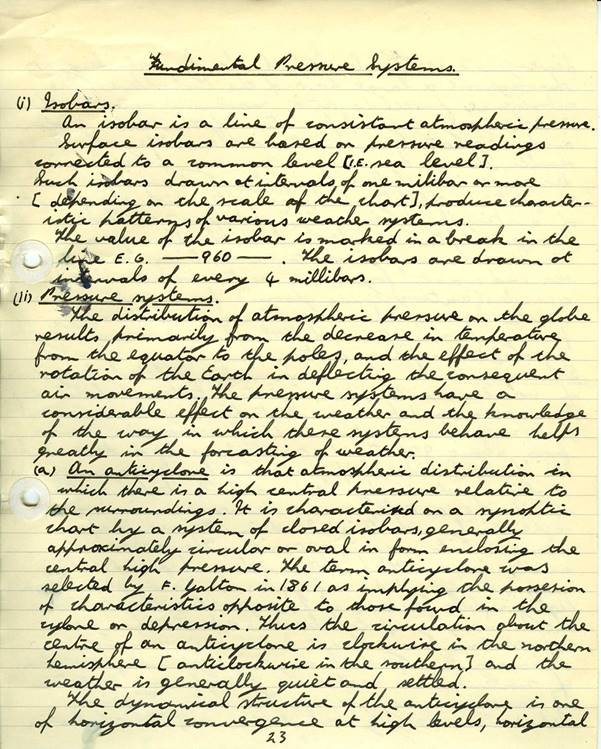 Fundimental Pressure Systems.
(i) Isobars.
An isobar is a line of consistant atmospheric pressure.
Surface isobars are based on pressure readings
corrected to a common level [I.E. sea level].
Such isobars drawn at intervals of one milibar or more
[depending on the scale of the chart], produce character-
istic patterns of various weather systems.
The value of the isobar is marked in a break in the
line E.G. — 960 — . The isobars are drawn at
intervals of every 4 millibars.
(ii) Pressure systems.
The distribution of atmospheric pressure on the globe
results primarily from the decrease in temperature
from the equator to the poles, and the effect of the
rotation of the Earth in deflecting the consequent
air movements. The pressure systems have a
considerable effect on the weather and the knowledge
of the way in which these systems behave helps
greatly in the forcasting of weather.
(a) An anticyclone is that atmospheric distribution in
which there is a high central pressure relative to
the surroundings. It is characterised on a synoptic
chart by a system of closed isobars, generally
approximately circular or oval in form enclosing the
central high pressure. The term anticyclone was
selected by F. Galton in 1861 as implying the possesion
of characteristics opposite to those found in the
cylone or depression. Thus the circulation about the
centre of an anticyclone is clockwise in the northern
hemisphere [anticlockwise in the southern] and the
weather is generally quiet and settled.
The dynamical structure of the anticyclone is one
of horizontal convergence at high levels, horizontal
23